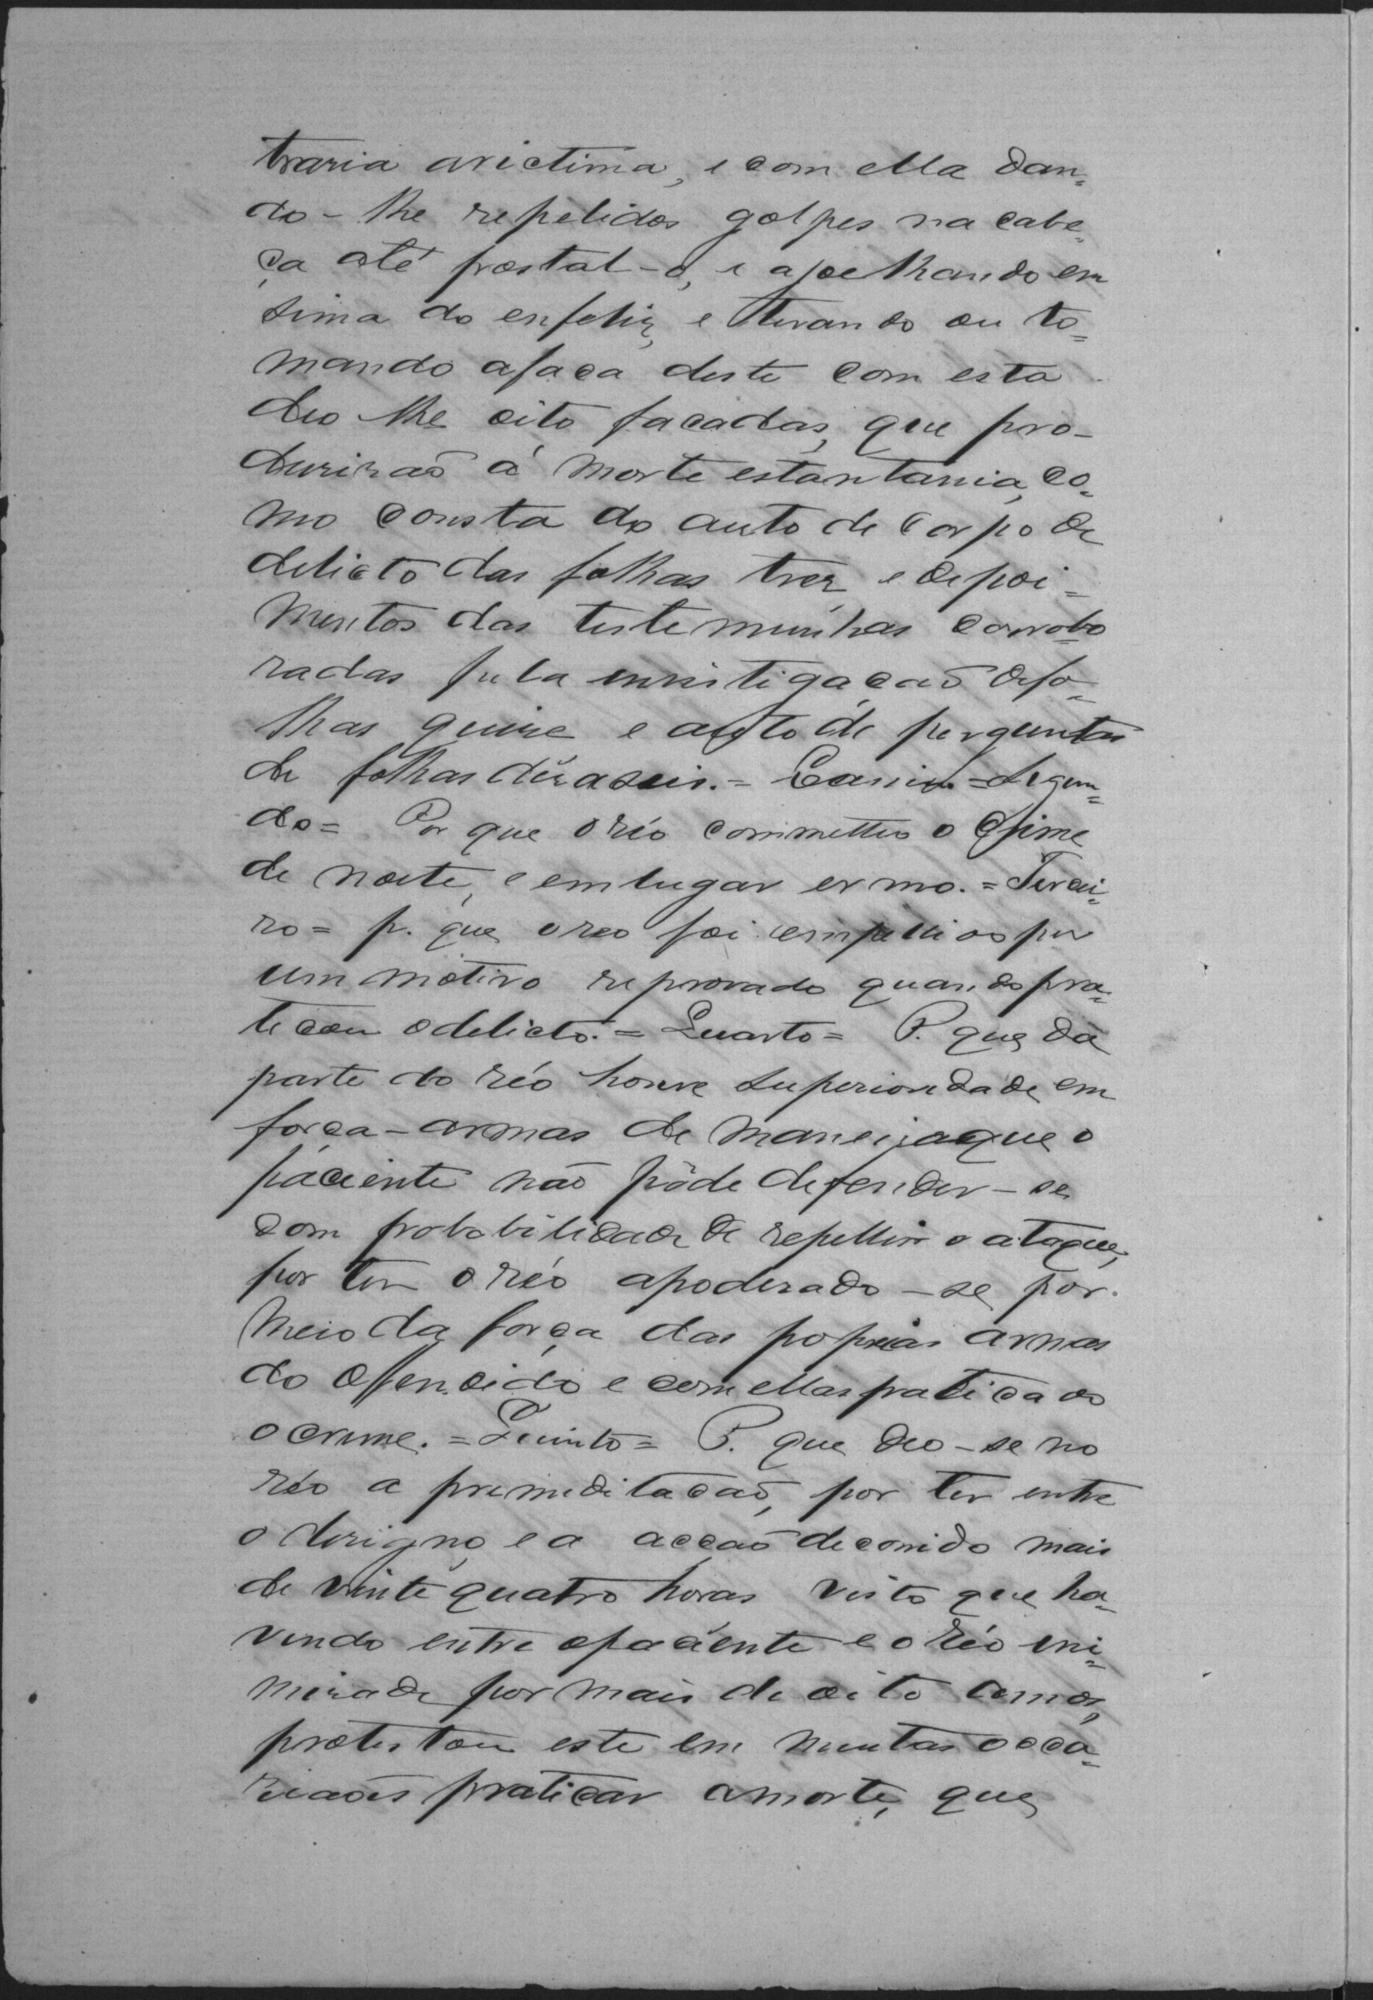 traria avictima, e com ella dan=
do-lhe repetidos golpes na cabe=
ça até prostal-o, e ajoelhando em
sima do enfeliz, e tirando ou to=
mando afaca deste com esta
deo lhe oito facadas, que pro-
durirão á morte estantania, co=
mo consta do auto de corpo de
delicto das folhas trez, e depoi=
mentos das testemunhas corrobo
radas pela envistigação defo=
lhas quinze e auto de perguntas
de folhas dezaseis. = Segun=
do = Por que o réo commetteo o crime
de noite, e em lugar ermo. = Tercei=
ro = p. que o reo foi empellido por
um motivo reprovado quando pra=
ticou o delicto. = Quarto = P. que da
parte do réo houve superioridade em
força-armas de maneira que o
paciente não pôde defender-se
com probabilidade de repellir o ataque,
por ter o réo apoderado-se por
meio da força das poprias armas
do offendido e com ellas praticado
o crime. = Quinto = P. que deo-se no
réo a primeditacão, por ter entre
o designo, e a accão decorrido mais
de vinte quatro horas visto que ha=
vendo entre opaciente e o réo ini=
mizade por mais de oito annos,
protestou este em muitas occa=
ziaões praticar amorte, que